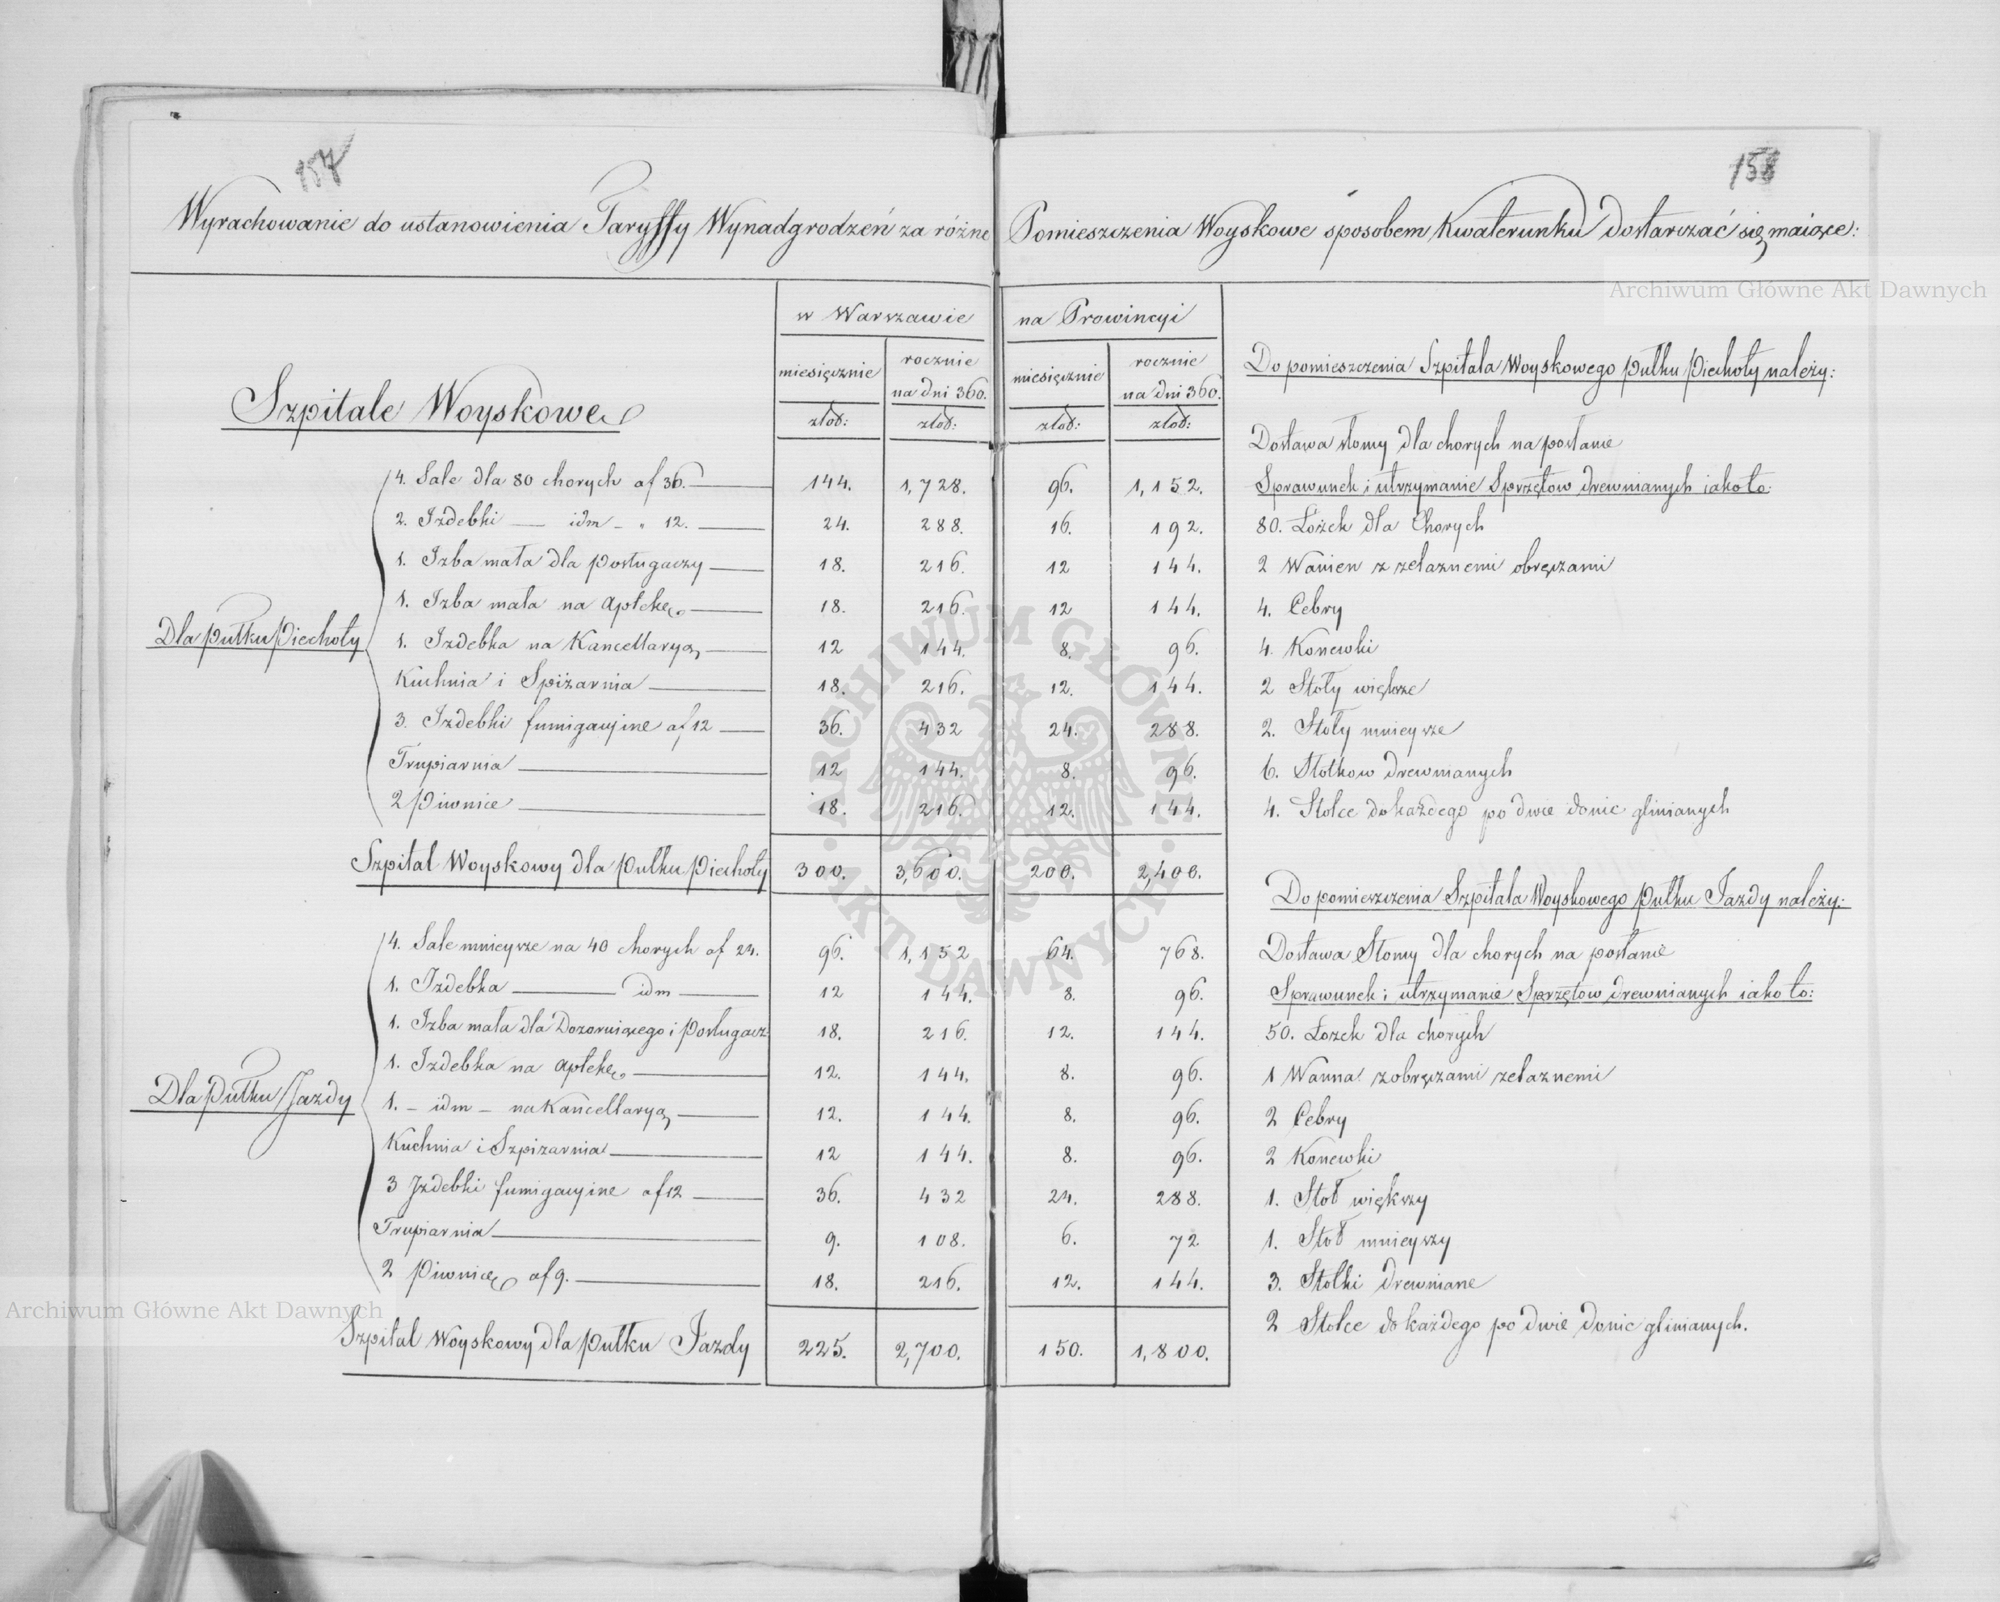 157
158
Wyrachowanie do ustanowienia Taryffy Wynadgrodzeń za różne Pomieszczenia Woyskowe sposobem Kwaterunku dostarczać się maiące:
Archiwum Główne Akt Dawnych
w Warszawie na Prowincyi
miesięcznie rocznie na dni 360. miesięcznie rocznie na dni 360.
złod: złod: złod: złod:
Szpitale Woyskowe
Dla Pułku Piechoty
4. Sale dla 80 chorych af 36. 144. 1,728. 96. 1,152.
2. Izdebki idm - " 12. 24. 288. 16. 192.
1. Izba mała dla posługaczy 18. 216. 12 144.
1. Izba mała na Aptekę 18. 216. 12 144.
1. Izdebka na Kancellaryą 12 144. 8. 96.
Kuchnia i Spiżarnia 18. 216. 12. 144.
3. Izdebki fumigacyine af 12 36. 432 24. 288.
Trupiarnia 12 144. 8. 96.
2 Piwnice 18. 216. 12. 144.
Szpital Woyskowy dla Pułku Piechoty 300. 3,600. 200. 2,400.
Dla Pułku Jazdy
4. Sale mnieysze na 40 chorych af 24. 96. 1,152 64. 768.
1. Izdebka idm 12 144. 8. 96.
1. Izba mała dla Dozoruiącego i Posługacz: 18. 216. 12. 144.
1. Izdebka na Aptekę 12. 144. 8. 96.
1. - idm - na Kancellaryą 12. 144. 8. 96.
Kuchnia i Szpizarnia 12 144. 8. 96.
3 Izdebki fumigacyine af 12 36. 432 24. 288.
Trupiarnia 9. 108. 6. 72
2 Piwnice af 9. 18. 216. 12. 144.
Szpital Woyskowy dla Pułku Jazdy 225. 2,700. 150. 1,800.
Do pomieszczenia Szpitala Woyskowego Pułku Piechoty należy:
Dostawa słomy dla chorych na posłanie
Sprawunek i utrzymanie Sprzętow drewnianych iako to:
80. Łożek dla Chorych
2 Wanien z żelaznemi obręczami
4. Cebry
4. Konewki
2 Stoły większe
2. Stoły mnieysze
6. Stołkow drewnianych
4. Stolce do każdego po dwie donic glinianych
Do pomieszczenia Szpitala Woyskowego Pułku Jazdy należy:
Dostawa Słomy dla chorych na posłanie
Sprawunek i utrzymanie Sprzętow drewnianych iako to:
50. Łożek dla chorych
1 Wanna z obręczami żelaznemi
2 Cebry
2 Konewki
1. Stoł większy
1. Stoł mnieyszy
3. Stołki drewniane
2 Stolce do każdego po dwie donic glinianych.
ARCHIWUM GŁÓWNE AKT DAWNYCH
Archiwum Główne Akt Dawnych